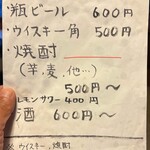 ・瓶ビール 600円
・ウイスキー角 500円
・焼酎
(芋、麦、他…)
500円〜
レモンサワー 400円
酒 600円〜
※ウイスキー、焼酎